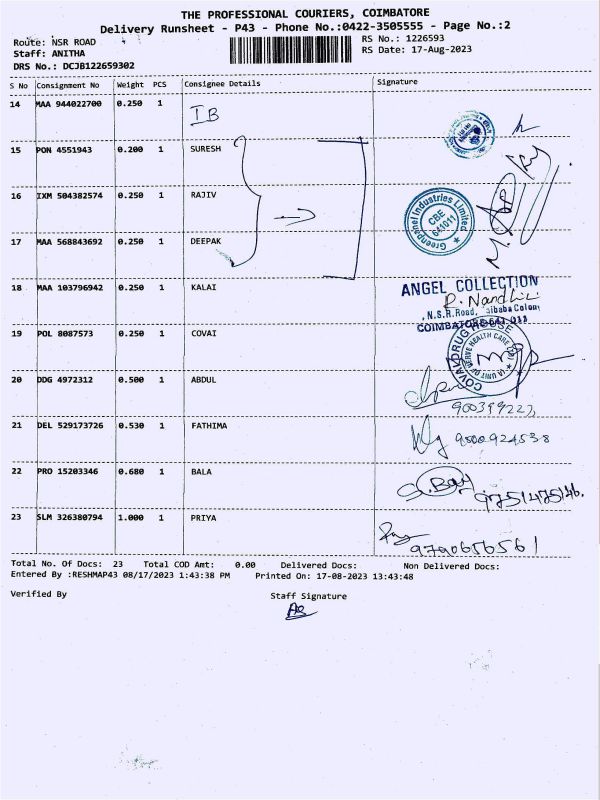 THE PROFESSIONAL COURIERS, COIMBATORE
Delivery Runsheet - P43 - Phone No.:0422-3505555 - Page No.:2
Route: NSR ROAD
RS No.: 1226593
Staff: ANITHA
RS Date: 17-Aug-2023
DRS No.: DCJB122659302
S No Consignment No Weight PCS Consignee Details Signature
14 MAA 944022700 0.250 1 IB
15 PON 4551943 0.200 1 SURESH
16 IXM 504382574 0.250 1 RAJIV
Greenpanel Industries Limited
CBE
641011
17 MAA 568843692 0.250 1 DEEPAK
18 MAA 103796942 0.250 1 KALAI
ANGEL COLLECTION
R. Nandhini
N.S.R.Road, Saibaba Colony
COIMBATORE-641 011
19 POL 8087573 0.250 1 COVAI
COVAI DRUG HOUSE
20 DDG 4972312 0.500 1 ABDUL
21 DEL 529173726 0.530 1 FATHIMA
9500924538
22 PRO 15203346 0.680 1 BALA
9751475146.
23 SLM 326380794 1.000 1 PRIYA
9790656561
Total No. Of Docs: 23 Total COD Amt: 0.00 Delivered Docs: Non Delivered Docs:
Entered By :RESHMAP43 08/17/2023 1:43:38 PM Printed On: 17-08-2023 13:43:48
Verified By
Staff Signature